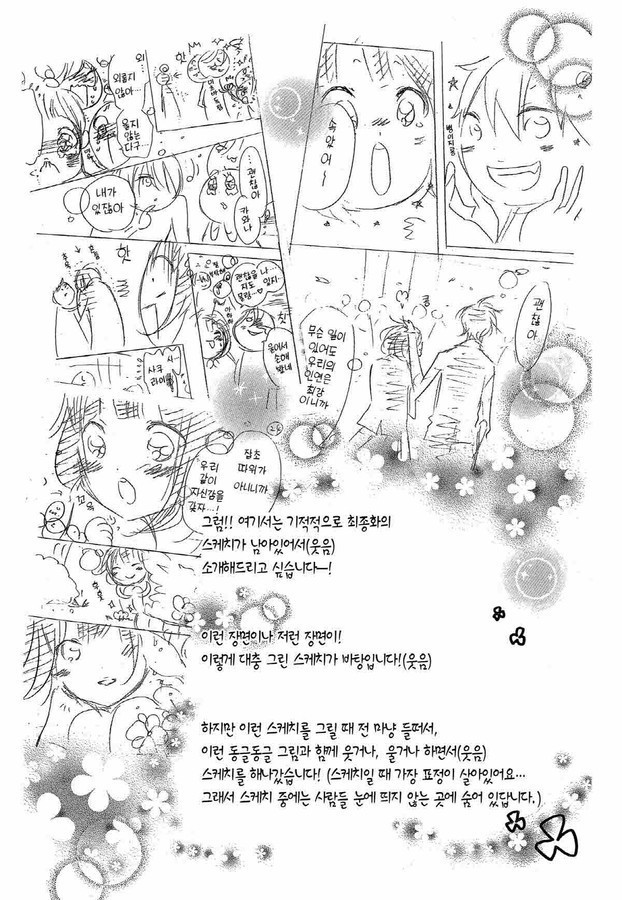 한
외롭지
않아
울지
않는
다구
속았어~
뱀이지롱
…
괜찮아
카와나
내가
있잖아
한
괜찮을
지도
몰랑~
나…
있지
칫
용이서
손해
봤네
괜
찮
아
무슨 일이
있어도
우리의
인연은
최강
이니까
사…
사쿠
라이
잡초
따위가
아니니까
우리
같이
자신감을
갖자…!
그럼!! 여기서는 기적적으로 최종화의
스케치가 남아있어서(웃음)
소개해드리고 싶습니다—!
이런 장면이나 저런 장면이!
이렇게 대충 그린 스케치가 바탕입니다!(웃음)
하지만 이런 스케치를 그릴 때 전 마냥 들떠서,
이런 동글동글 그림과 함께 웃거나, 울거나 하면서(웃음)
스케치를 해나갔습니다! (스케치일 때 가장 표정이 살아있어요…
그래서 스케치 중에는 사람들 눈에 띄지 않는 곳에 숨어 있답니다.)